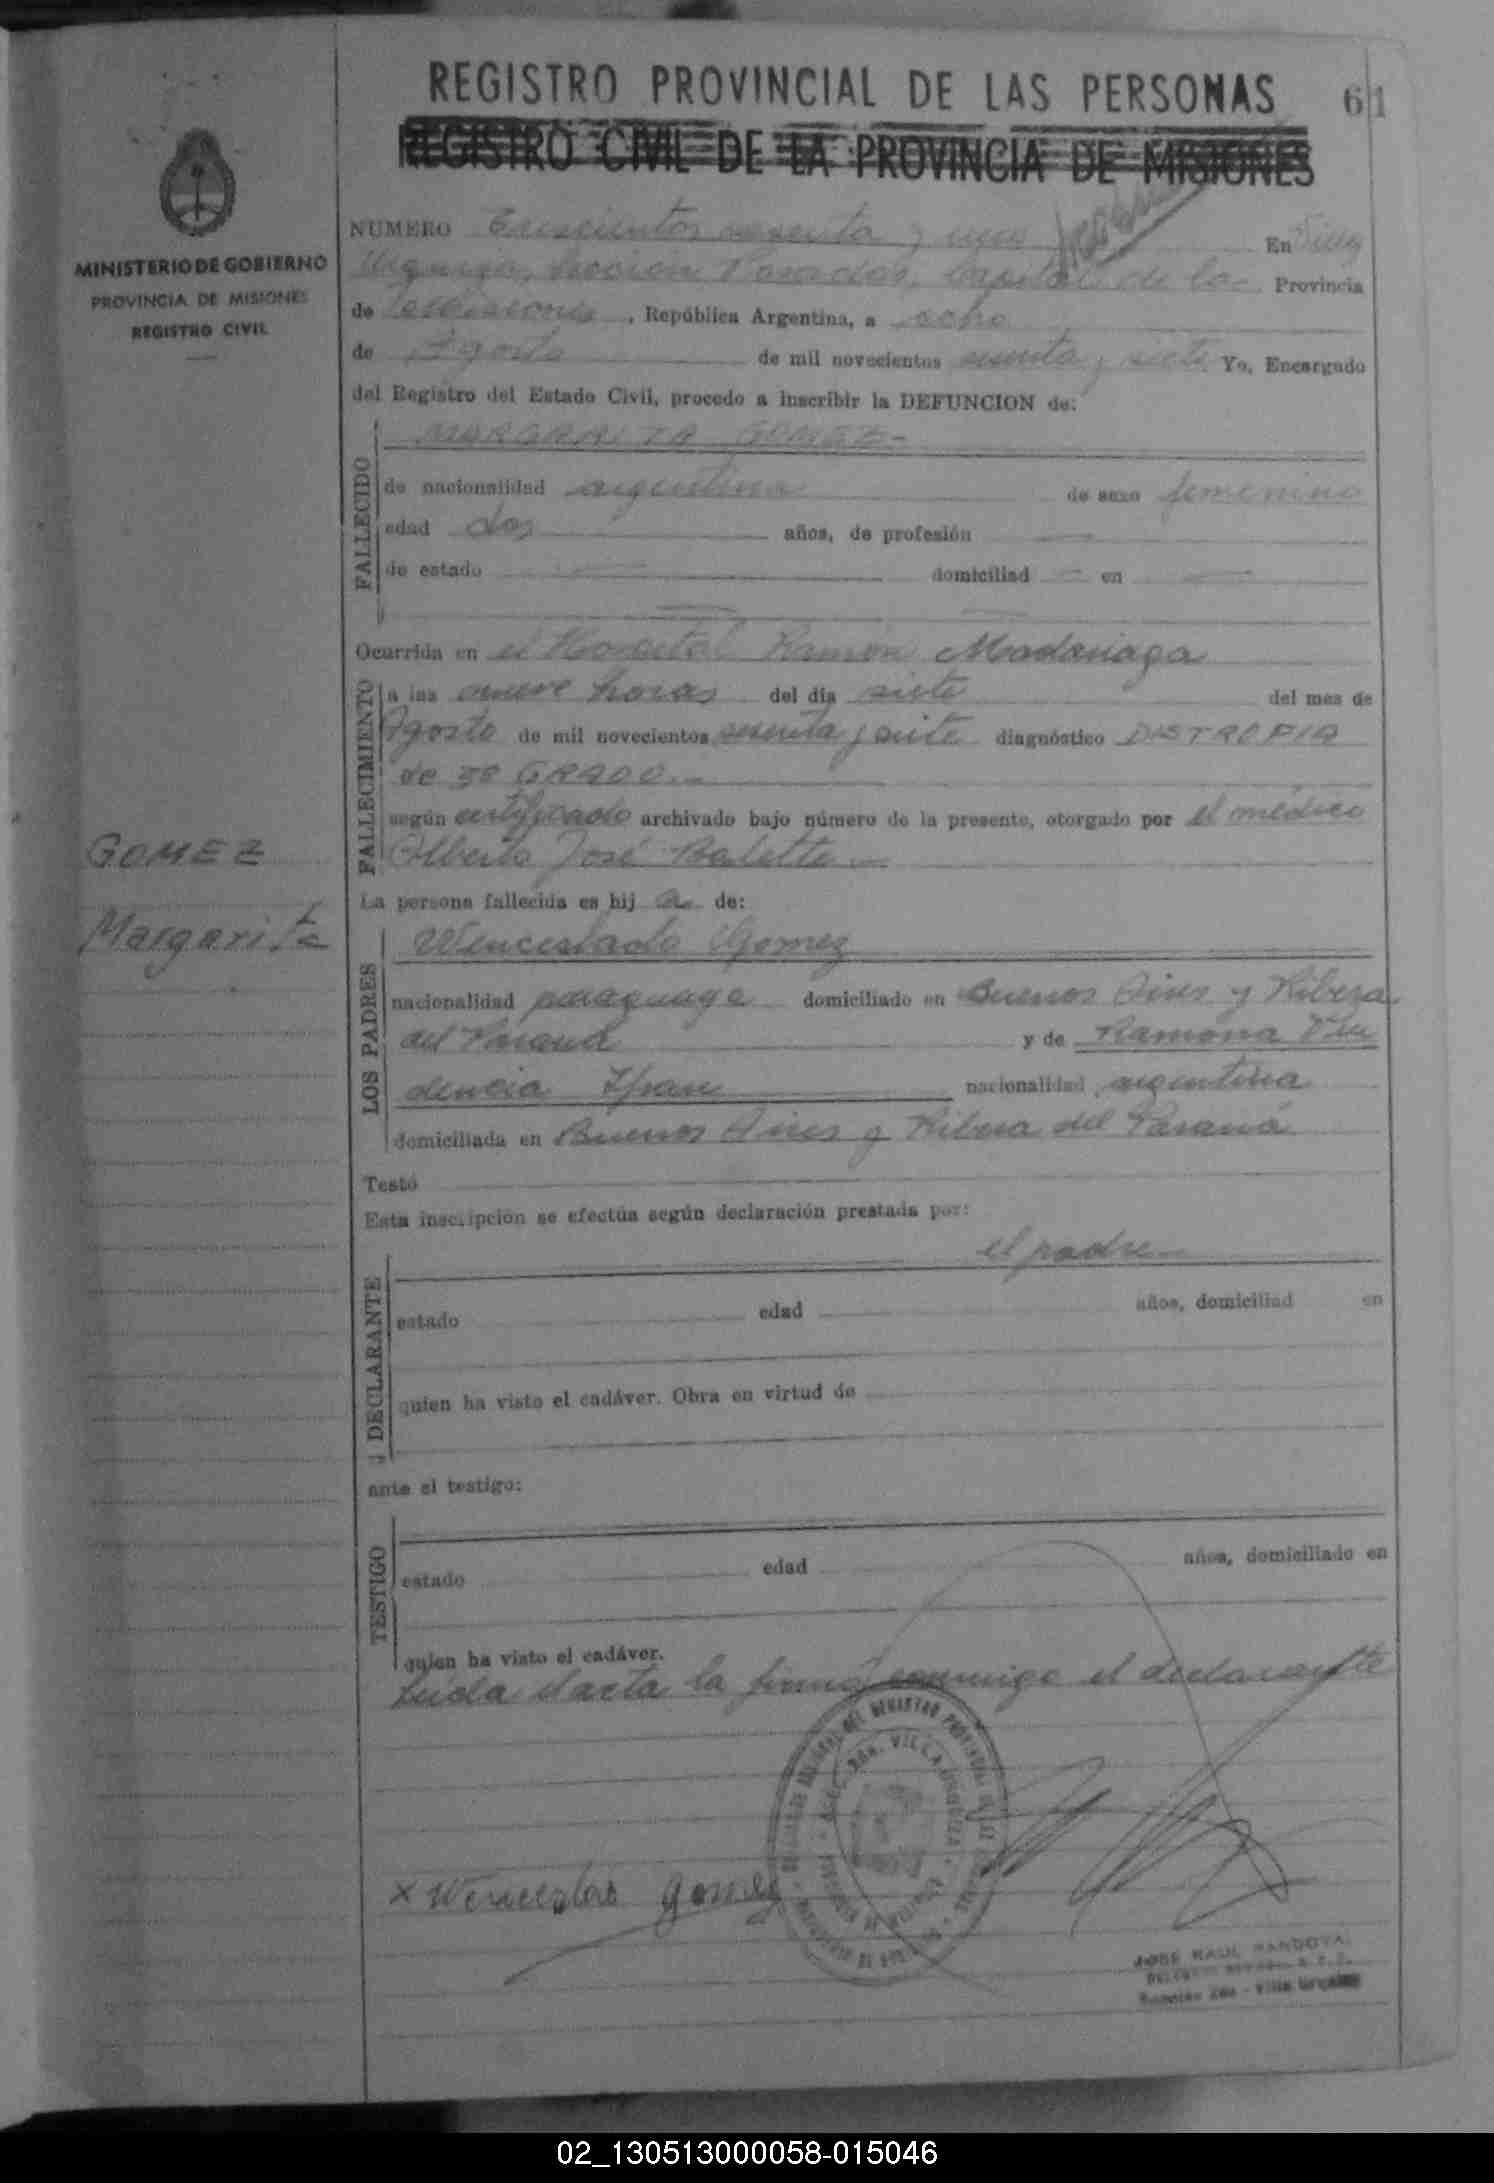 REGISTRO PROVINCIAL DE LAS PERSONAS 61
REGISTRO CIVIL DE LA PROVINCIA DE MISIONES
MINISTERIO DE GOBIERNO
PROVINCIA DE MISIONES
REGISTRO CIVIL
NUMERO Trescientos sesenta y uno En Villa
Urquiza, sección Posadas, Capital de la Provincia
de Misiones, República Argentina, a ocho
de Agosto de mil novecientos sesenta y siete Yo, Encargado
del Registro del Estado Civil, procedo a inscribir la DEFUNCION de:
MARGARITA GOMEZ-
FALLECIDO
de nacionalidad argentina de sexo femenino
edad dos años, de profesión —
de estado — domiciliad — en —
Ocurrida en el Hospital Ramón Madariaga
FALLECIMIENTO
a las nueve horas del día siete del mes de
Agosto de mil novecientos sesenta y siete diagnóstico DISTROFIA
de 3º GRADO.-
según certificado archivado bajo número de la presente, otorgado por el médico
Alberto José
GOMEZ
Margarita
La persona fallecida es hij a de:
LOS PADRES
Wenceslado Gomez
nacionalidad paraguaya domiciliado en Buenos Aires y Ribera
del Paraná y de Ramona Pru
dencia Ifran nacionalidad argentina
domiciliada en Buenos Aires y Ribera del Paraná
Testó
Esta inscripción se efectúa según declaración prestada por:
el padre-
DECLARANTE
estado edad años, domiciliad en
quien ha visto el cadáver. Obra en virtud de
ante el testigo:
TESTIGO
estado edad años, domiciliado en
quien ha visto el cadáver.
Leida el acta la firmó conmigo el declarante
x Wenceslao Gomez
JOSE RAUL SANDOVAL
02_130513000058-015046